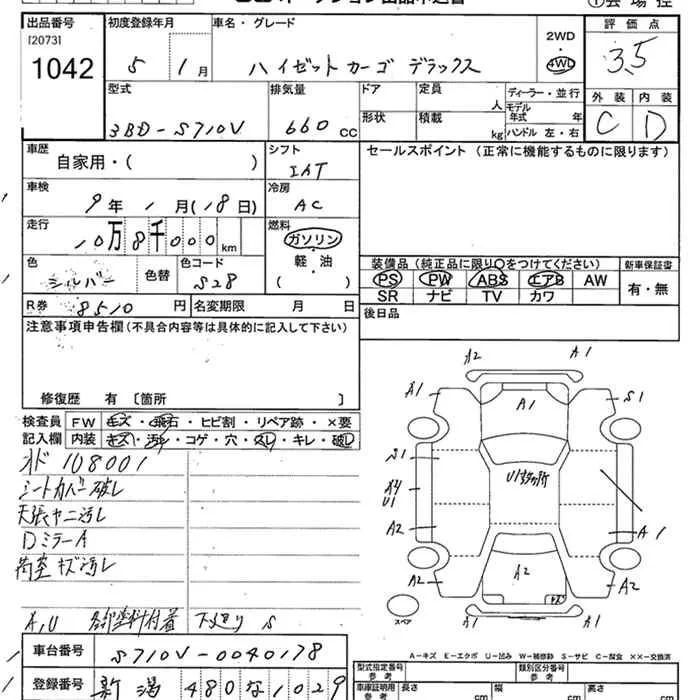 出品番号
[2073]
1042
初度登録年月
5 1月
車名・グレード
ハイゼットカーゴ デラックス
2WD
・
4WD
評価点
3.5
外装 内装
C D
型式
3BD-S710V
排気量
660 CC
ドア
定員 人
形状
積載 kg
ディーラー・並行
モデル年式 年
ハンドル 左・右
車歴
自家用・( )
シフト
IAT
セールスポイント (正常に機能するものに限ります)
車検
9年 1月(18日)
冷房
AC
走行
10万8千000km
燃料
ガソリン
軽・油
( )
色
シルバー
色替
色コード
S28
R券 8510円
名変期限 月 日
装備品(純正品に限り○をつけてください)
PS PW ABS エアB AW
SR ナビ TV カワ
新車保証書
有・無
後日品
注意事項申告欄(不具合内容等は具体的に記入して下さい)
修復歴 有 〔箇所 〕
検査員記入欄
FW キズ・飛石・ヒビ割・リペア跡・×要
内装 キズ・汚れ・コゲ・穴・スレ・キレ・破レ
108001
シートカバー破レ
天張ヤニ汚レ
DミラーA
荷室キズ汚レ
A,U 各部塗料付着 下廻りS
A2 A1
A1 A1 S1
S1
U1多数所
A4
U1
A2 A1
A2 A2 キズ A2
A1 A1
スペア
A-キズ E-エクボ U-凹み W-補修跡 S-サビ C-腐食 ××-交換済
車台番号 S710V-0040178
登録番号 新潟 480 な 1029
型式指定番号 参考
類別区分番号 参考
車庫証明用 参考
長さ cm 幅 cm 高さ cm